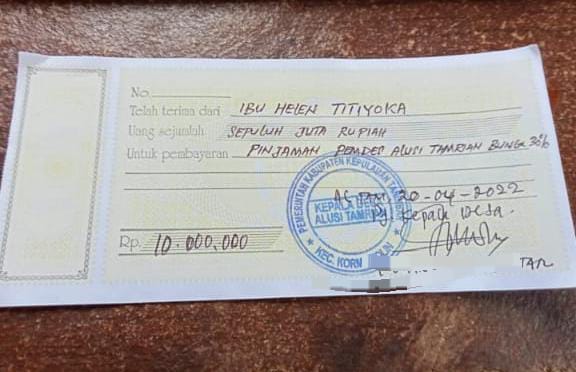 No.
Telah terima dari IBU HELEN TITIYOKA
Uang sejumlah SEPULUH JUTA RUPIAH
Untuk pembayaran PINJAMAN PEMDES ALUSI TAMRIAN BUNGA 30%
20-04-2022
Pj. Kepala Desa.
PEMERINTAH KABUPATEN KEPULAUAN
KEPALA DESA
ALUSI TAMR
KEC. KORM
Rp. 10.000.000